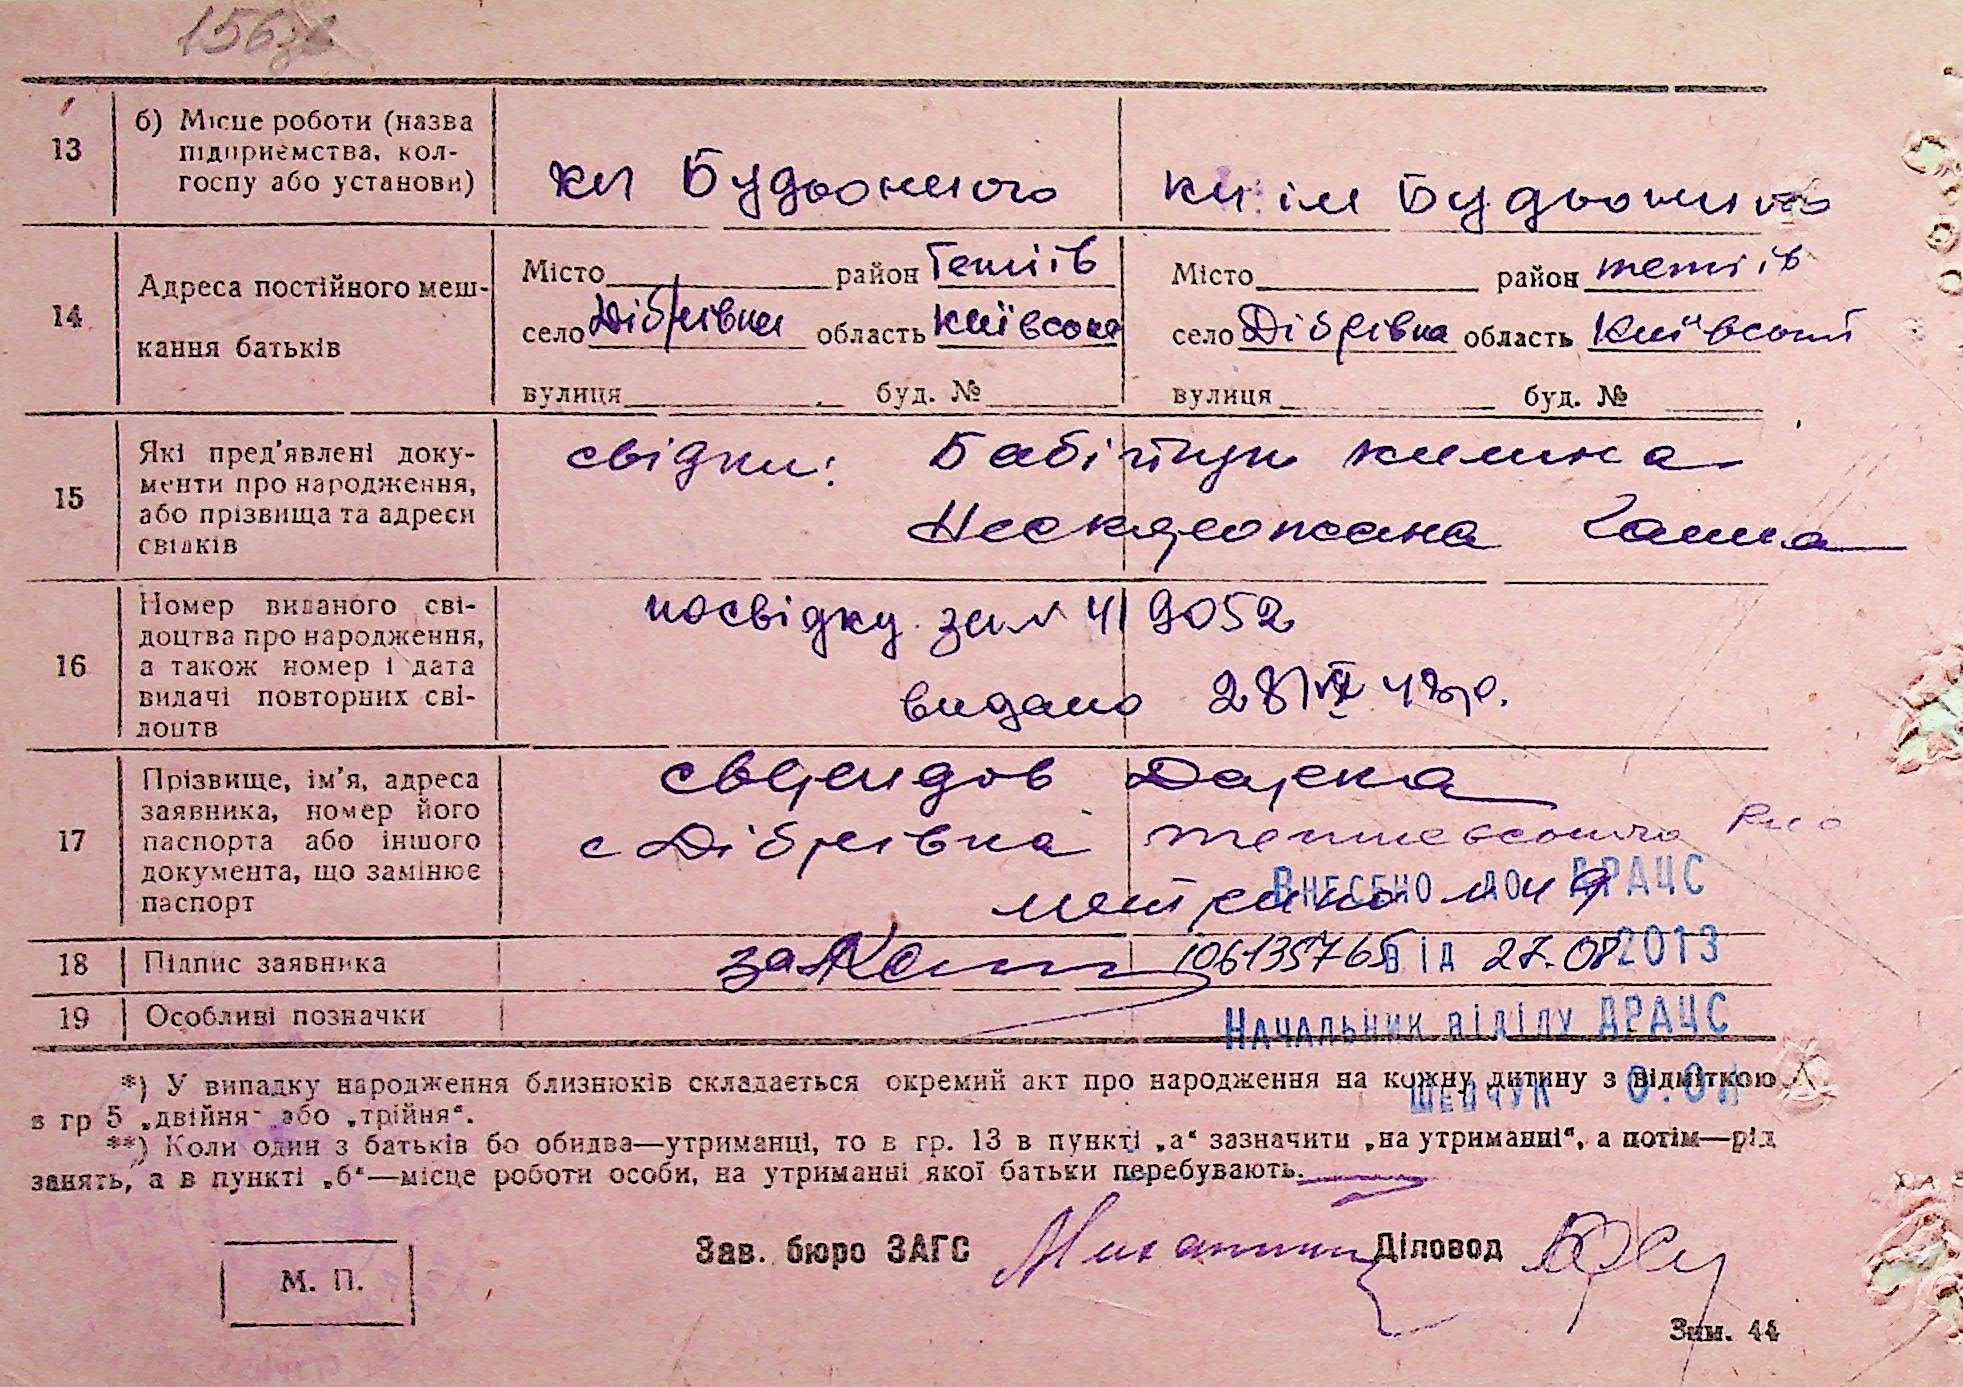 156
13 б) Місце роботи (назва підприємства, колгоспу або установи)
кп Будьонного
кп ім Будьонного
14 Адреса постійного мешкання батьків
Місто район Тетіїв
село Дібрівка область Київська
вулиця буд. №
Місто район тетіїв
село Дібрівка область Київської
вулиця буд. №
15 Які пред'явлені документи про народження, або прізвища та адреси свідків
свідки:
16 Номер виданого свідоцтва про народження, а також номер і дата видачі повторних свідоцтв
посвідку за № 419052
видано 28/VI 48 р.
17 Прізвище, ім'я, адреса заявника, номер його паспорта або іншого документа, що замінює паспорт
Дарка
с Дібрівка
Внесено до ДРАЦС
18 Підпис заявника
106135765 від 27.08 2013
19 Особливі позначки
Начальник відділу ДРАЦС
Шевчук О.О.
*) У випадку народження близнюків складається окремий акт про народження на кожну дитину з відміткою
в гр 5 „двійня" або „трійня".
**) Коли один з батьків бо обидва—утриманці, то в гр. 13 в пункті „а" зазначити „на утриманні", а потім—рід
занять, а в пункті „б"—місце роботи особи, на утриманні якої батьки перебувають.
Зав. бюро ЗАГС
Діловод
М. П.
Зам. 44